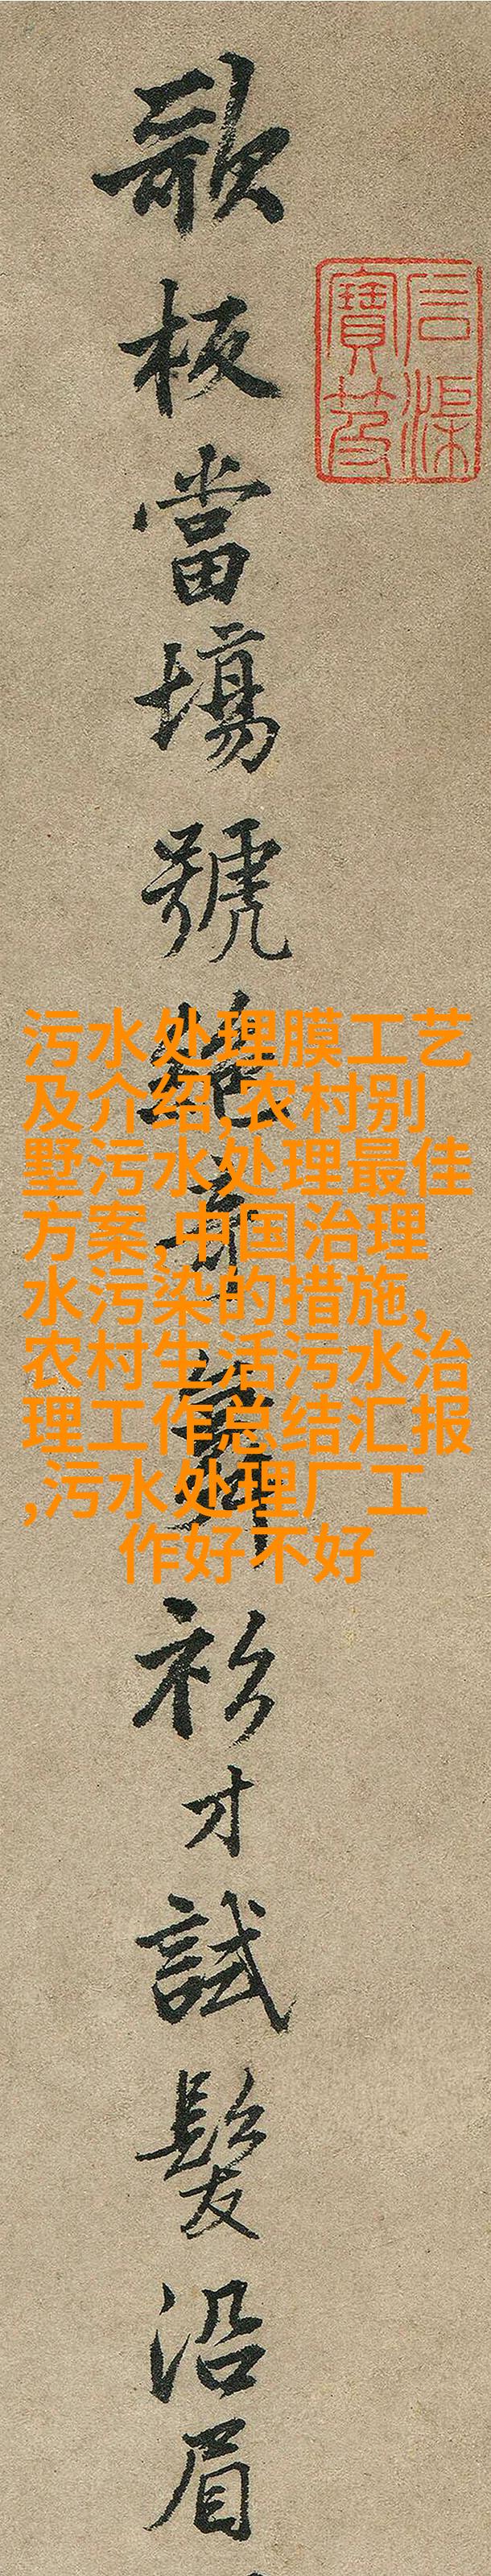 石渠寶笈
歌板當塲號絕奇舞衫才試髮沿眉
污水处理膜工艺
及介绍,农村别
墅污水处理最佳
方案,中国治理
水污染的措施,
农村生活污水治
理工作总结汇报
,污水处理厂工
作好不好